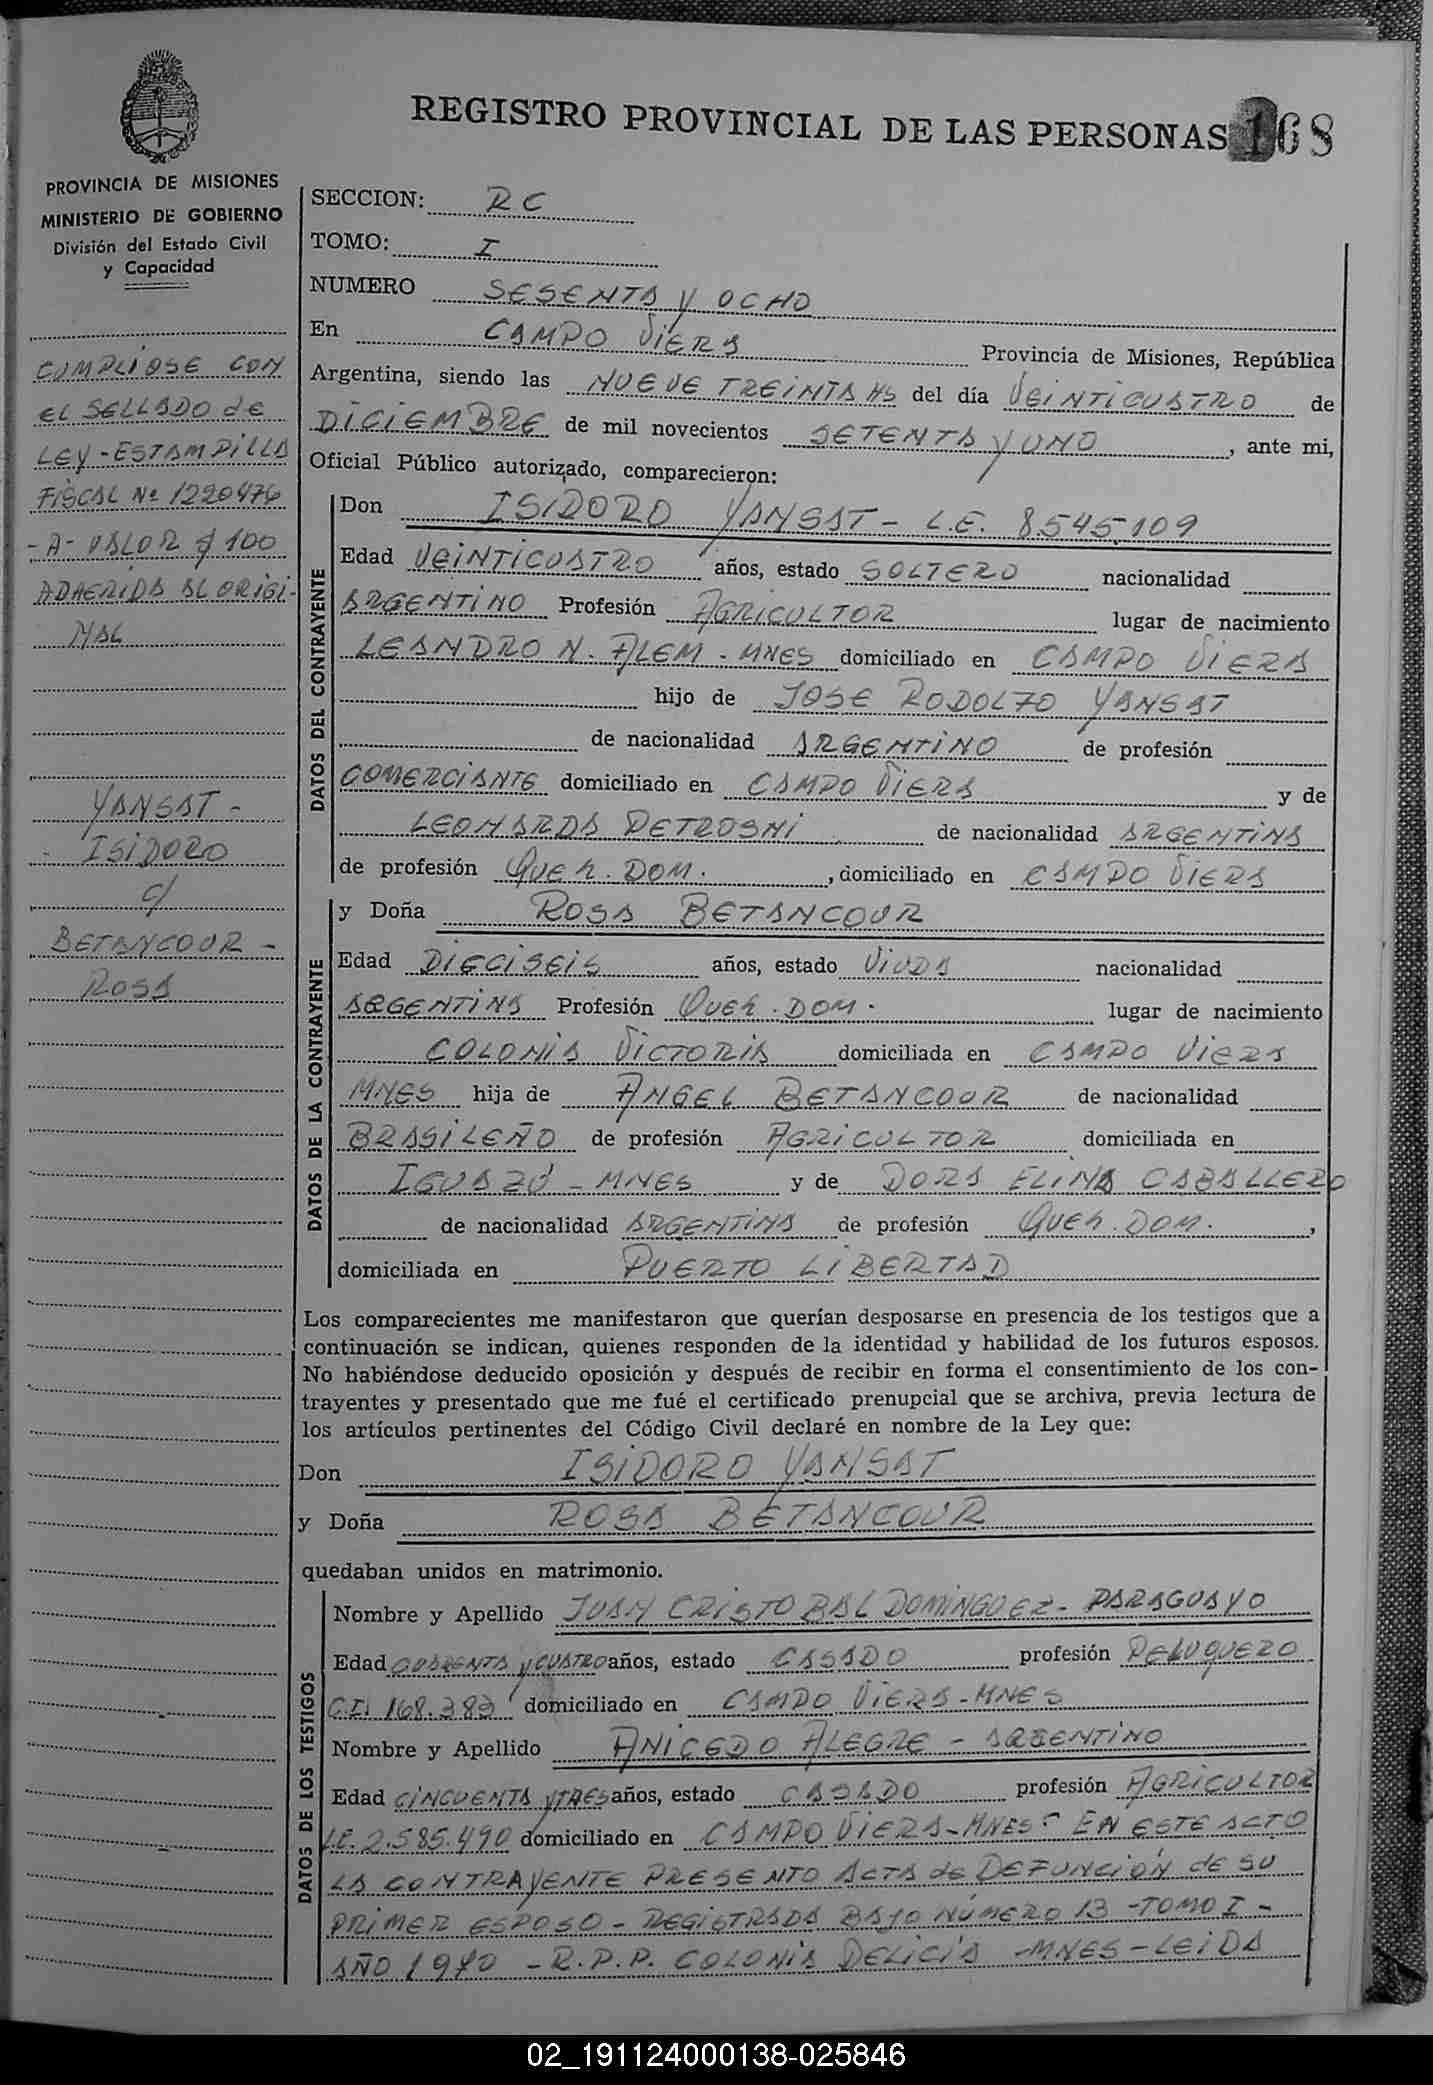 REGISTRO PROVINCIAL DE LAS PERSONAS 168
PROVINCIA DE MISIONES
MINISTERIO DE GOBIERNO
División del Estado Civil
y Capacidad
CUMPLIOSE CON
EL SELLADO de
LEY - ESTAMPILLA
FISCAL Nº 1220476
- A - VALOR $ 100
ADHERIDA AL ORIGI-
NAL
YANSAT -
- ISIDORO
c/
BETANCOUR -
ROSA
SECCION: RC
TOMO: I
NUMERO SESENTA y OCHO
En CAMPO VIERA Provincia de Misiones, República
Argentina, siendo las NUEVE TREINTA Hs del día VEINTICUATRO de
DICIEMBRE de mil novecientos SETENTA y UNO, ante mi,
Oficial Público autorizado, comparecieron:
DATOS DEL CONTRAYENTE
Don ISIDORO YANSAT - L.E. 8.545.109
Edad VEINTICUATRO años, estado SOLTERO nacionalidad
ARGENTINO Profesión AGRICULTOR lugar de nacimiento
LEANDRO N. ALEM - MNES domiciliado en CAMPO VIERA
hijo de JOSE RODOLFO YANSAT
de nacionalidad ARGENTINO de profesión
COMERCIANTE domiciliado en CAMPO VIERA y de
LEONARDA PETROSNI de nacionalidad ARGENTINA
de profesión QUEH. DOM., domiciliado en CAMPO VIERA
DATOS DE LA CONTRAYENTE
y Doña ROSA BETANCOUR
Edad DIECISEIS años, estado VIUDA nacionalidad
ARGENTINA Profesión QUEH. DOM. lugar de nacimiento
COLONIA VICTORIA domiciliada en CAMPO VIERA
MNES hija de ANGEL BETANCOUR de nacionalidad
BRASILEÑO de profesión AGRICULTOR domiciliada en
IGUAZÚ - MNES y de DORA ELINA CABALLERO
de nacionalidad ARGENTINA de profesión QUEH. DOM.,
domiciliada en PUERTO LIBERTAD
Los comparecientes me manifestaron que querían desposarse en presencia de los testigos que a
continuación se indican, quienes responden de la identidad y habilidad de los futuros esposos.
No habiéndose deducido oposición y después de recibir en forma el consentimiento de los con-
trayentes y presentado que me fué el certificado prenupcial que se archiva, previa lectura de
los artículos pertinentes del Código Civil declaré en nombre de la Ley que:
Don ISIDORO YANSAT
y Doña ROSA BETANCOUR
quedaban unidos en matrimonio.
DATOS DE LOS TESTIGOS
Nombre y Apellido JUAN CRISTOBAL DOMINGUEZ - PARAGUAYO
Edad CUARENTA y CUATRO años, estado CASADO profesión PELUQUERO
C.I. 168.383 domiciliado en CAMPO VIERA - MNES
Nombre y Apellido ANICEDO ALEGRE - ARGENTINO
Edad CINCUENTA y TRES años, estado CASADO profesión AGRICULTOR
L.E. 2.585.490 domiciliado en CAMPO VIERA - MNES - EN ESTE ACTO
LA CONTRAYENTE PRESENTO ACTA de DEFUNCIÓN de SU
PRIMER ESPOSO - REGISTRADA BAJO NÚMERO 13 - TOMO I -
AÑO 1970 - R.P.P. COLONIA DELICIA - MNES - LEIDA
02_191124000138-025846